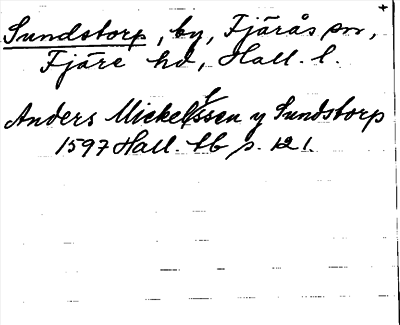 Sundstorp, by, Fjärås sn,
Fjäre hd, Hall. l.
Anders Mickelssen y Sundstorp
1597 Hall. lb p. 121.